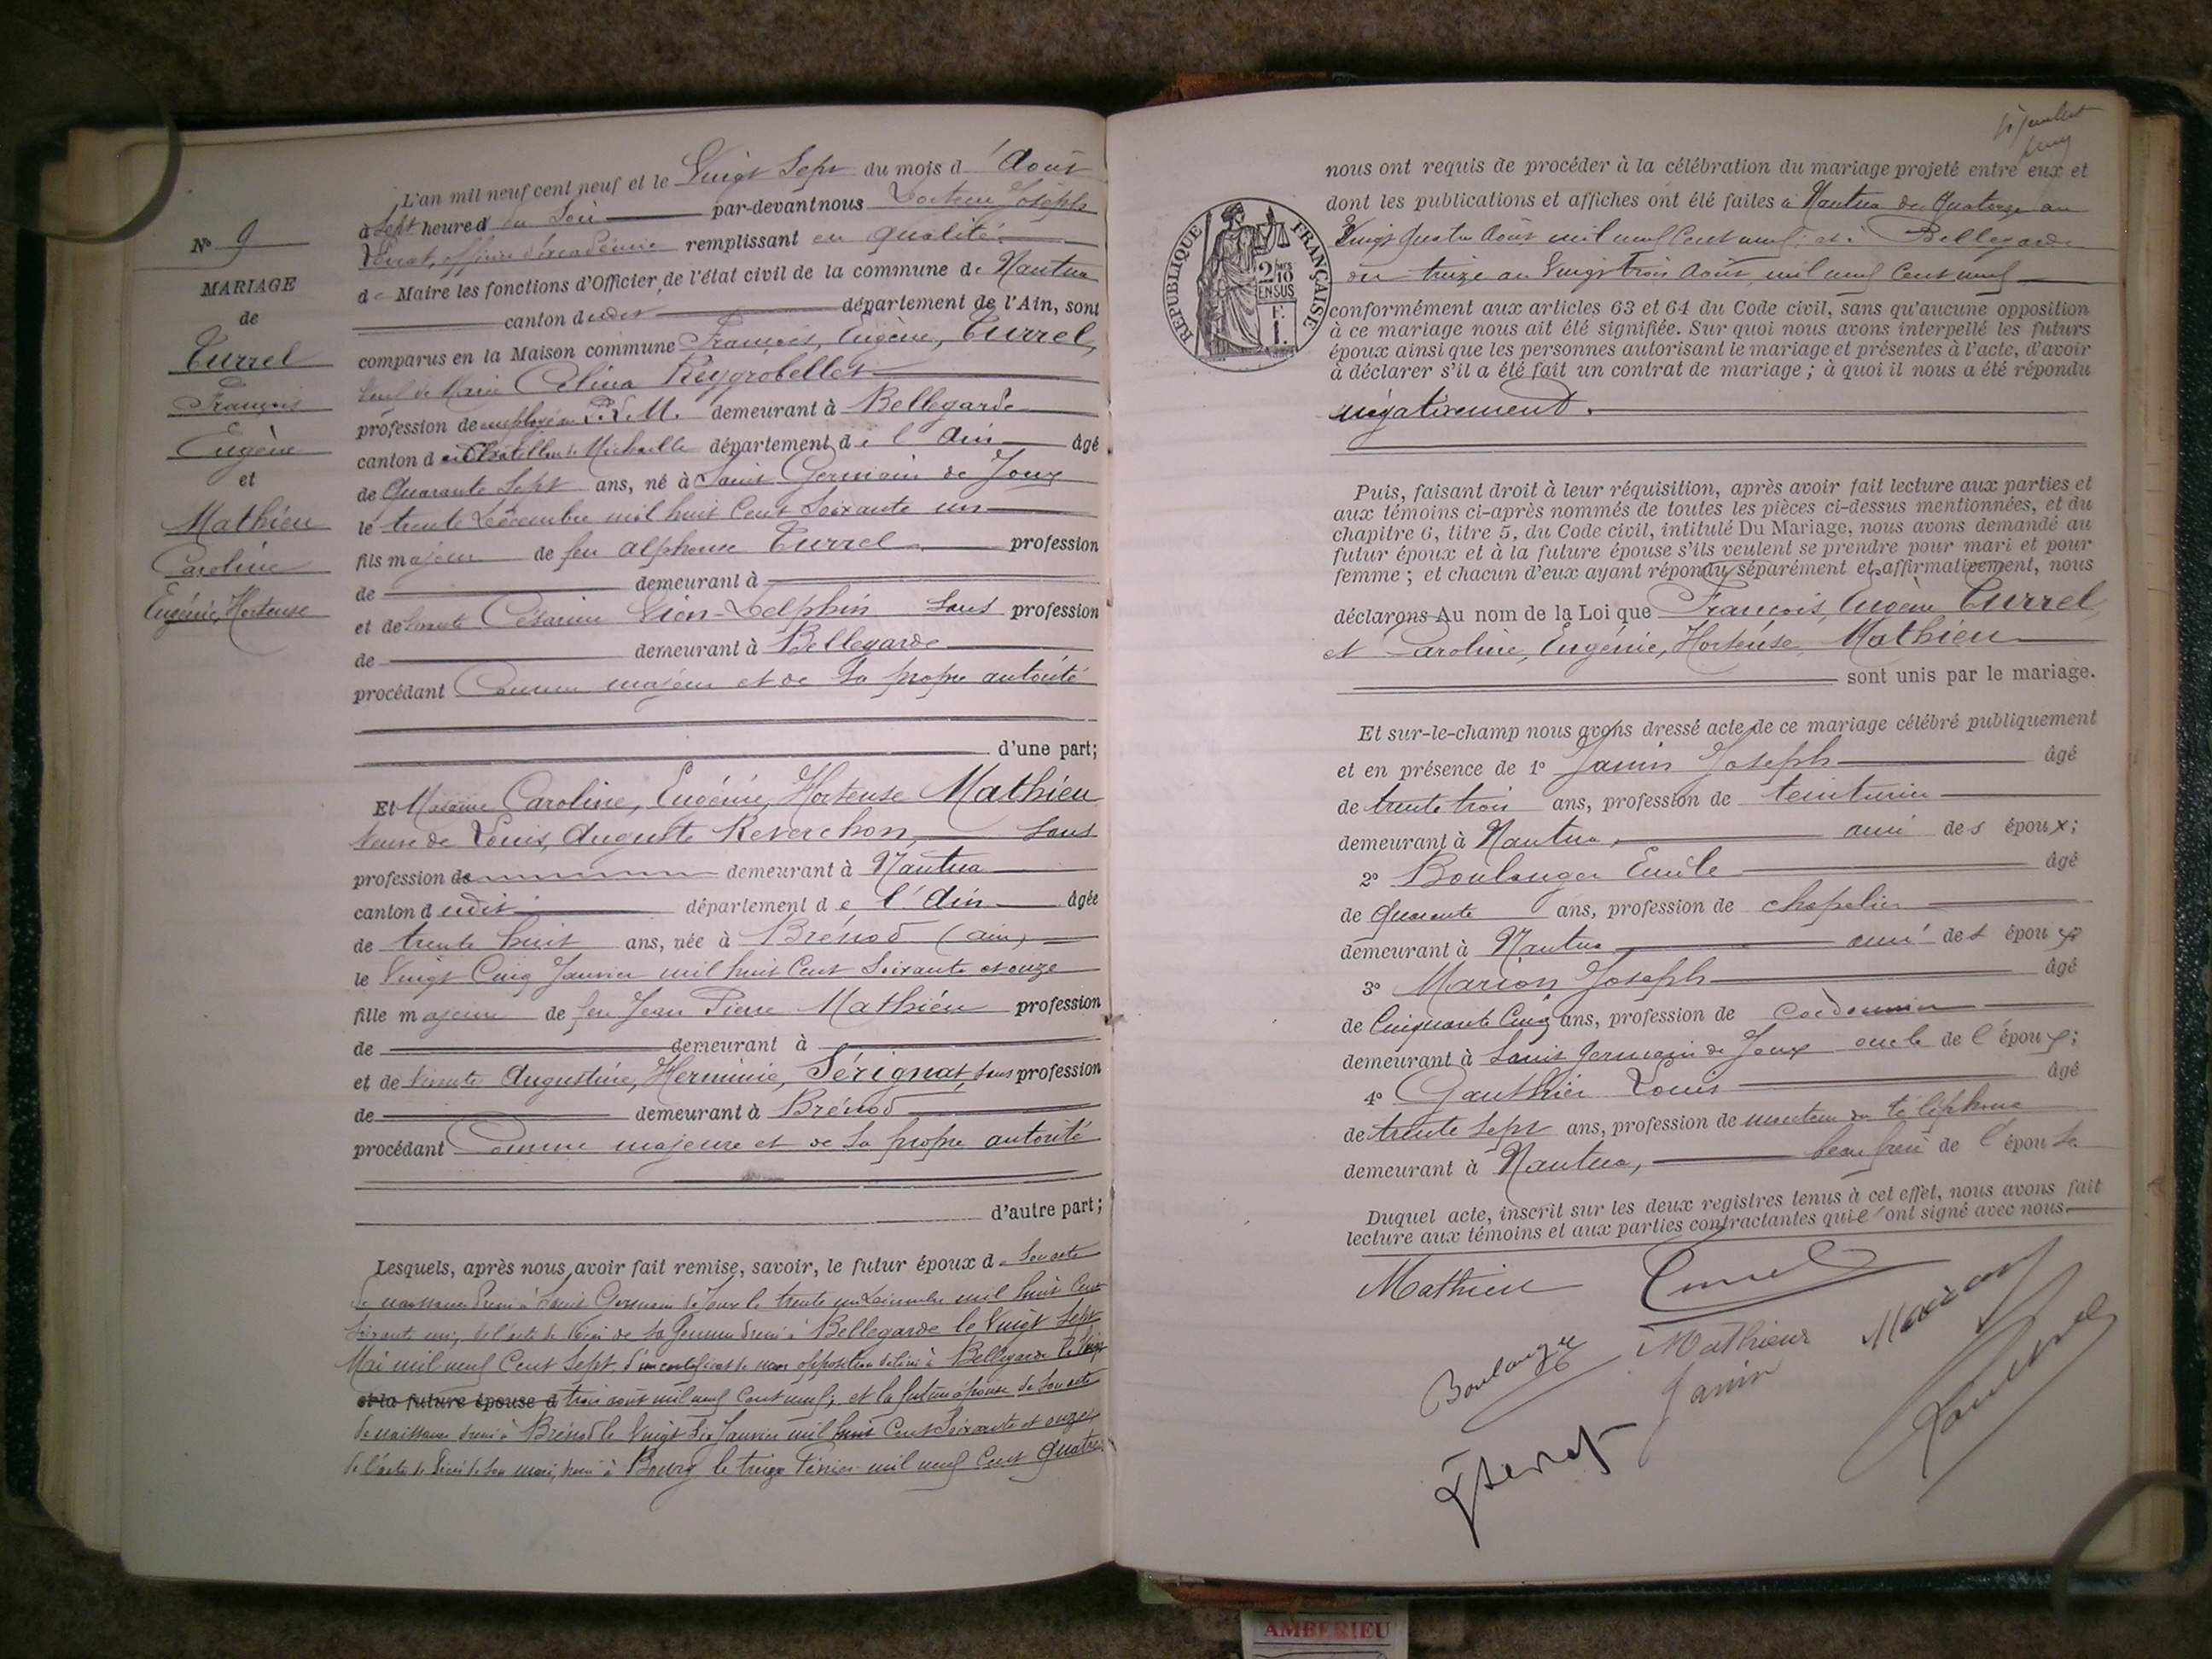 N° 9
MARIAGE
de
Turrel
François
Eugène
et
Mathieu
Caroline
Eugénie, Hortense
L'an mil neuf cent neuf et le Vingt Sept du mois d'Août
à Sept heures du Soir par-devant nous Docteur Joseph
officier d'académie remplissant en qualité
de Maire les fonctions d'Officier de l'état civil de la commune de Nantua
canton dudit département de l'Ain, sont
comparus en la Maison commune François, Eugène, Turrel,
veuf de Marie Célina Reygrobellet
profession de employé au P.L.M. demeurant à Bellegarde
canton de Châtillon de Michaille département de l'Ain âgé
de Quarante Sept ans, né à Saint Germain de Joux
le trente Décembre mil huit Cent Soixante un
fils majeur de feu Alphonse Turrel profession
de demeurant à
et de vivante Césarine Lion-Delphin Sans profession
de demeurant à Bellegarde
procédant Comme majeur et de Sa propre autorité
d'une part;
Et Madame Caroline, Eugénie, Hortense Mathieu
Veuve de Louis, Auguste Reverchon, Sans
profession de demeurant à Nantua
canton dudit département de l'Ain âgée
de trente huit ans, née à Brénod (Ain)
le Vingt Cinq Janvier mil huit Cent Soixante et onze
fille majeure de feu Jean Pierre Mathieu profession
de demeurant à
et de vivante Augustine, Herminie, Sérignat, Sans profession
de demeurant à Brénod
procédant Comme majeure et de Sa propre autorité
d'autre part;
Lesquels, après nous avoir fait remise, savoir, le futur époux de Son acte
de naissance dressé à Saint Germain de Joux le trente un Décembre mil huit Cent
Soixante un; de l'acte de décès de Sa femme dressé à Bellegarde le Vingt Sept
Mai mil neuf Cent Sept, d'un certificat de non opposition délivré à Bellegarde le Vingt
et la future épouse d trois août mil neuf Cent neuf; et la future épouse de Son acte
de naissance dressé à Brénod le Vingt Six Janvier mil huit Cent Soixante et onze,
de l'acte de décès de Son mari, dressé à Bourg le treize Février mil neuf Cent Quatre
nous ont requis de procéder à la célébration du mariage projeté entre eux et
dont les publications et affiches ont été faites à Nantua du Quatorze au
Vingt Quatre Août mil neuf Cent neuf; et à Bellegarde
du treize au Vingt trois Août mil neuf Cent neuf
RÉPUBLIQUE FRANÇAISE
2/10 EN SUS
1 F.
conformément aux articles 63 et 64 du Code civil, sans qu'aucune opposition
à ce mariage nous ait été signifiée. Sur quoi nous avons interpellé les futurs
époux ainsi que les personnes autorisant le mariage et présentes à l'acte, d'avoir
à déclarer s'il a été fait un contrat de mariage; à quoi il nous a été répondu
négativement.
Puis, faisant droit à leur réquisition, après avoir fait lecture aux parties et
aux témoins ci-après nommés de toutes les pièces ci-dessus mentionnées, et du
chapitre 6, titre 5, du Code civil, intitulé Du Mariage, nous avons demandé au
futur époux et à la future épouse s'ils veulent se prendre pour mari et pour
femme; et chacun d'eux ayant répondu séparément et affirmativement, nous
déclarons Au nom de la Loi que François, Eugène Turrel
et Caroline, Eugénie, Hortense, Mathieu
sont unis par le mariage.
Et sur-le-champ nous avons dressé acte de ce mariage célébré publiquement
et en présence de 1° Janin Joseph âgé
de trente trois ans, profession de teinturier
demeurant à Nantua, ami des époux;
2° Boulanger Emile âgé
de Quarante ans, profession de chapelier
demeurant à Nantua ami des époux
3° Marion Joseph âgé
de Cinquante Cinq ans, profession de cordonnier
demeurant à Saint Germain de Joux oncle de l'époux;
4° Gauthier Louis âgé
de trente Sept ans, profession de monteur du téléphone
demeurant à Nantua, beau frère de l'épouse
Duquel acte, inscrit sur les deux registres tenus à cet effet, nous avons fait
lecture aux témoins et aux parties contractantes qui l'ont signé avec nous.
Mathieu Turrel
Boulanger Mathieu Marion
Janin
AMBERIEU